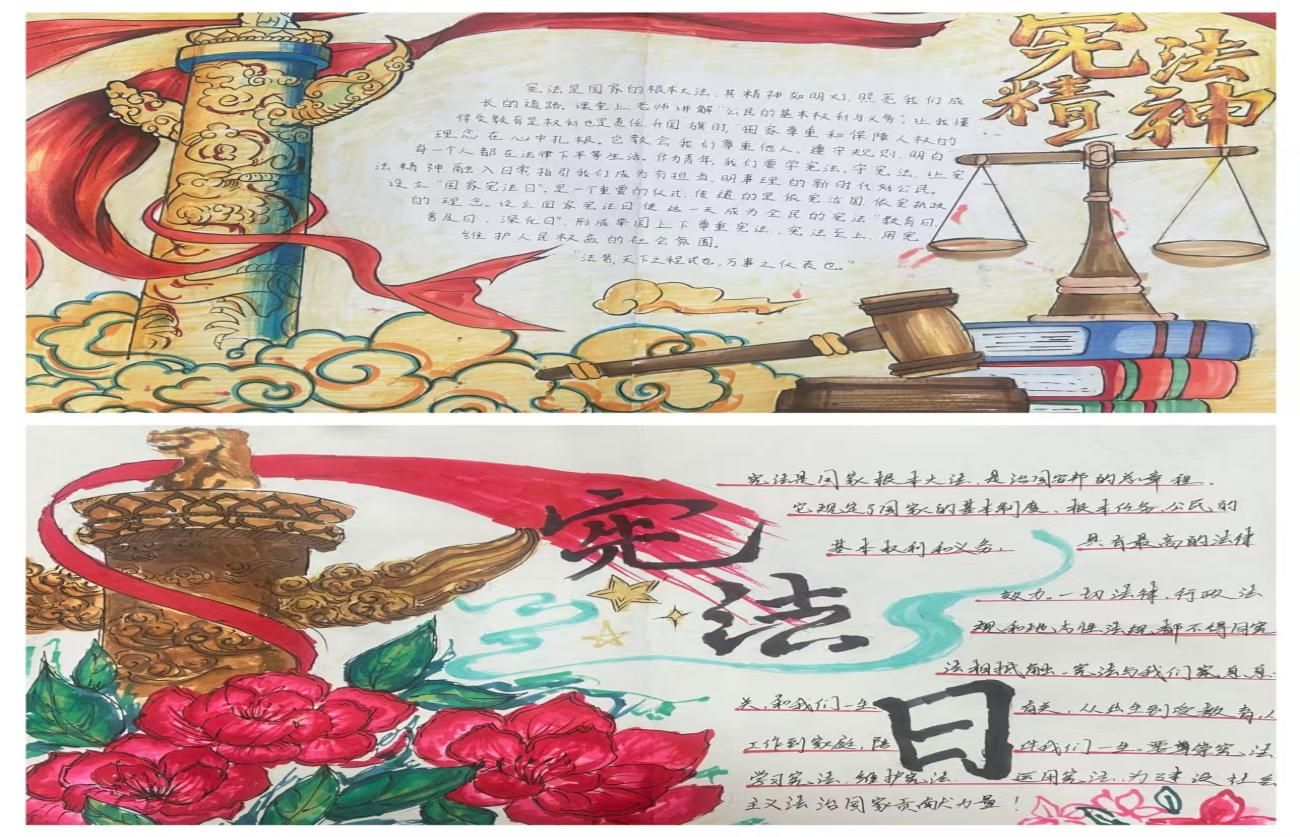 宪法
精神
宪法是国家的根本大法，其精神如明灯，照亮我们成
长的道路。课堂上老师讲解"公民的基本权利与义务"，让我懂
得受教育是权利也是责任，升国旗时，"国家尊重和保障人权的
理念在心中扎根。它教会我们尊重他人，遵守规则，明白
每一个人都在法律下平等生活。作为青年，我们要学宪法，守宪法，让宪
法精神融入日常指引我们成为有担当，明事理的新时代好公民。
设立"国家宪法日"，是一个重要的仪式，传递的是依宪治国，依宪执政
的理念。设立国家宪法日使这一天成为全民的宪法"教育日，
普及日，深化日"，形成举国上下尊重宪法，宪法至上，用宪
维护人民权益的社会氛围。
"法者，天下之程式也，万事之仪表也。"
宪法日
宪法是国家根本大法，是治国安邦的总章程，
它规定了国家的基本制度、根本任务、公民的
基本权利和义务，具有最高的法律
效力，一切法律，行政法
规和地方性法规都不得同宪
法相抵触，宪法与我们家息息
关，和我们一生有关，从出生到受教育，从
工作到家庭，陪伴我们一生，要尊崇宪法
学习宪法，维护宪法 运用宪法，为建设社会
主义法治国家贡献力量！